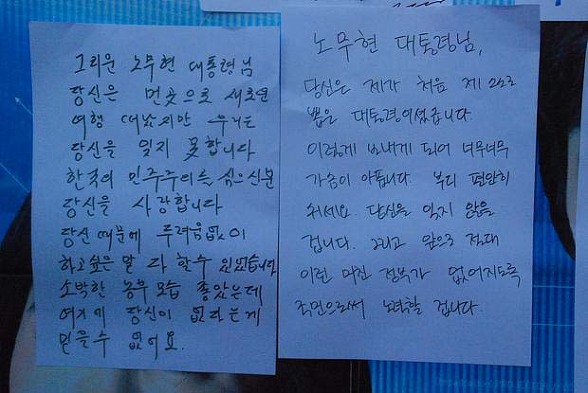 그리운 노무현 대통령님
당신은 먼곳으로 새로운
여행 떠났지만 우리는
당신을 잊지 못합니다
한국의 민주주의를 심으신분
당신을 사랑합니다
당신 때문에 두려움없이
하고싶은 말 다 할수 있었습니다
소박한 농부 모습 좋았는데
여기에 당신이 없다는게
믿을수 없어요.
노무현 대통령님,
당신은 제가 처음 제 손으로
뽑은 대통령이셨습니다.
이렇게 보내게 되어 너무너무
가슴이 아픕니다. 부디 편안히
쉬세요. 당신을 잊지 않을
겁니다. 그리고 앞으로 절대
이런 미친 정부가 없어지도록
국민으로써 노력할 겁니다.